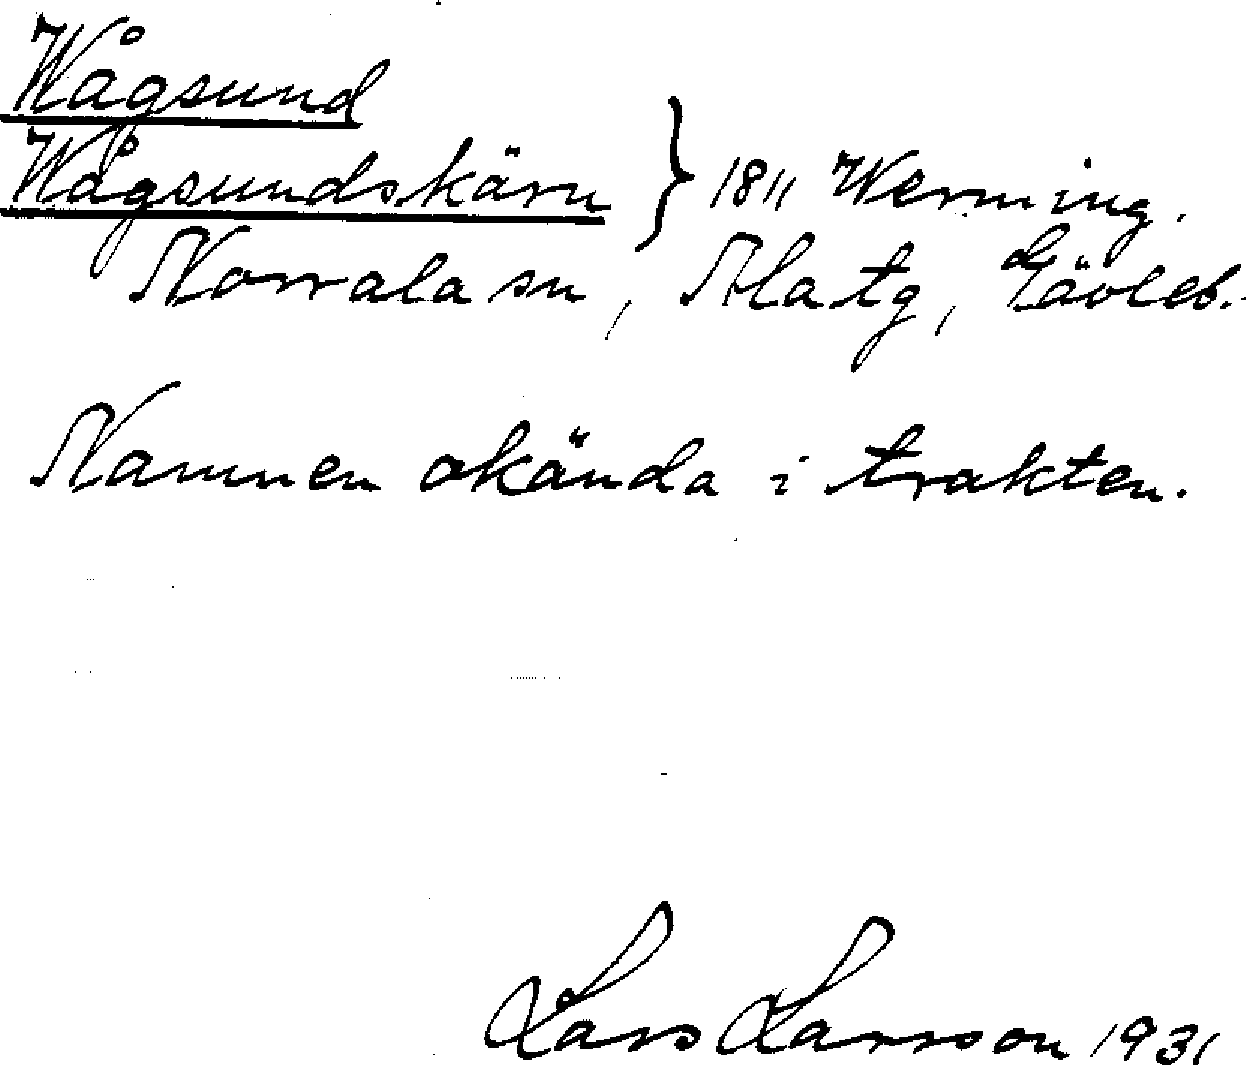 Wågsund
Wågsundskärn } 1811 Werming.
Norrala sn, Ala tg, Gävleb.
Namnen okända i trakten.
Lars Larsson 1931